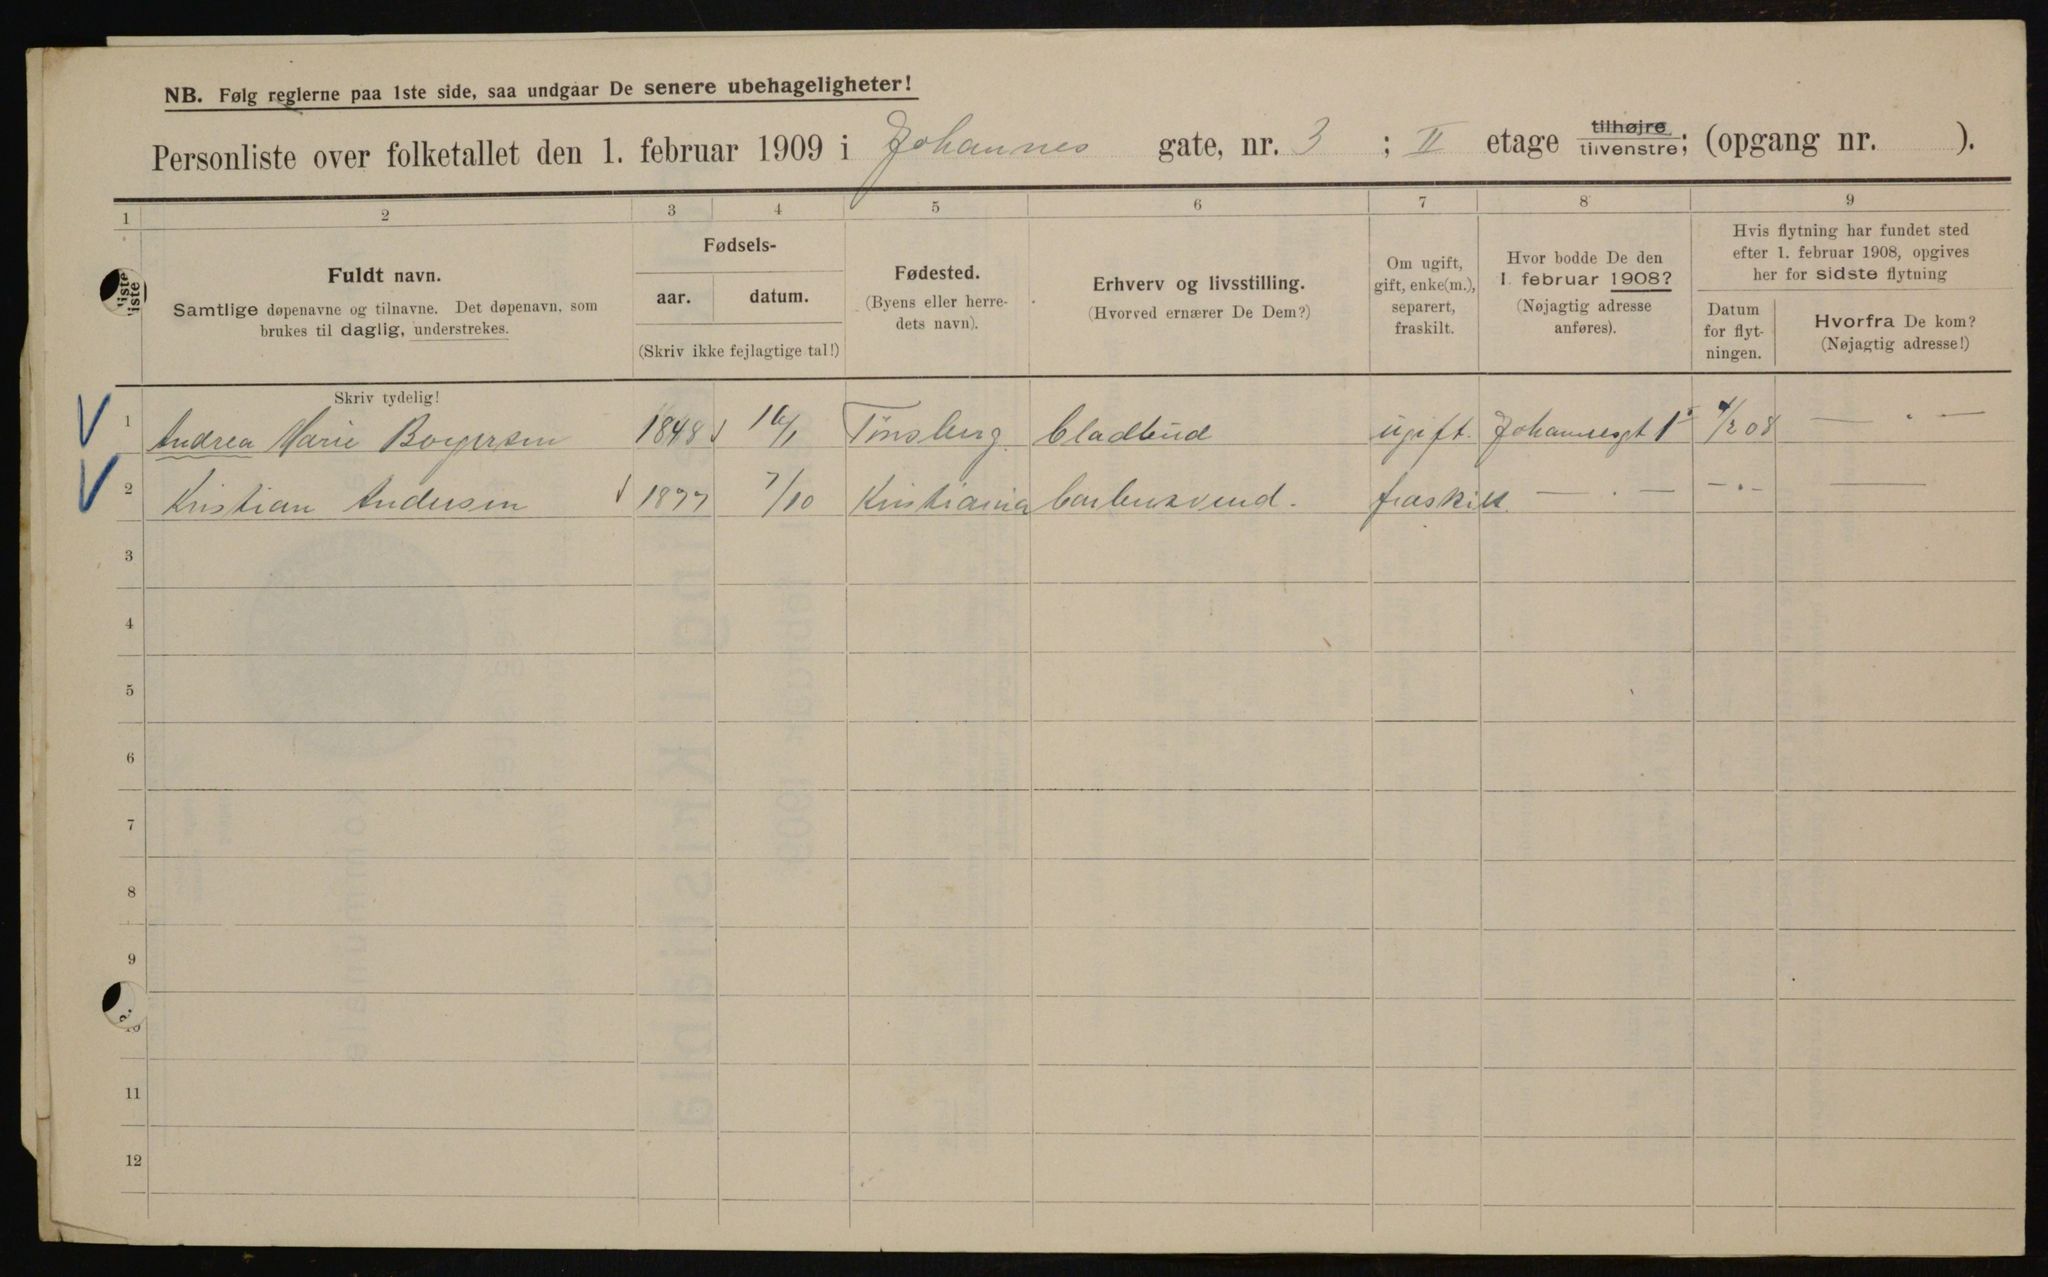 NB. Følg reglerne paa 1ste side, saa undgaar De senere ubehageligheter!
Personliste over folketallet den 1. februar 1909 i Johannes gate, nr. 3 ; II etage tilhøjre tilvenstre; (opgang nr. ).
1 2 3 4 5 6 7 8 9
Fuldt navn.
Samtlige døpenavne og tilnavne. Det døpenavn, som
brukes til daglig, understrekes.
Fødsels-
aar. datum.
(Skriv ikke fejlagtige tal!)
Fødested.
(Byens eller herre-
dets navn).
Erhverv og livsstilling.
(Hvorved ernærer De Dem?)
Om ugift,
gift, enke(m.),
separert,
fraskilt.
Hvor bodde De den
1. februar 1908?
(Nøjagtig adresse
anføres).
Hvis flytning har fundet sted
efter 1. februar 1908, opgives
her for sidste flytning
Datum
for flyt-
ningen.
Hvorfra De kom?
(Nøjagtig adresse!)
Skriv tydelig!
1 Andrea Marie Borgersen 1848 16/1 Tønsberg. Bladbud ugift. Johannesgt 1 4/2 08 — . —
2 Kristian Andersen 1877 7/10 Kristiania fraskilt — . — — . — —
3
4
5
6
7
8
9
10
11
12